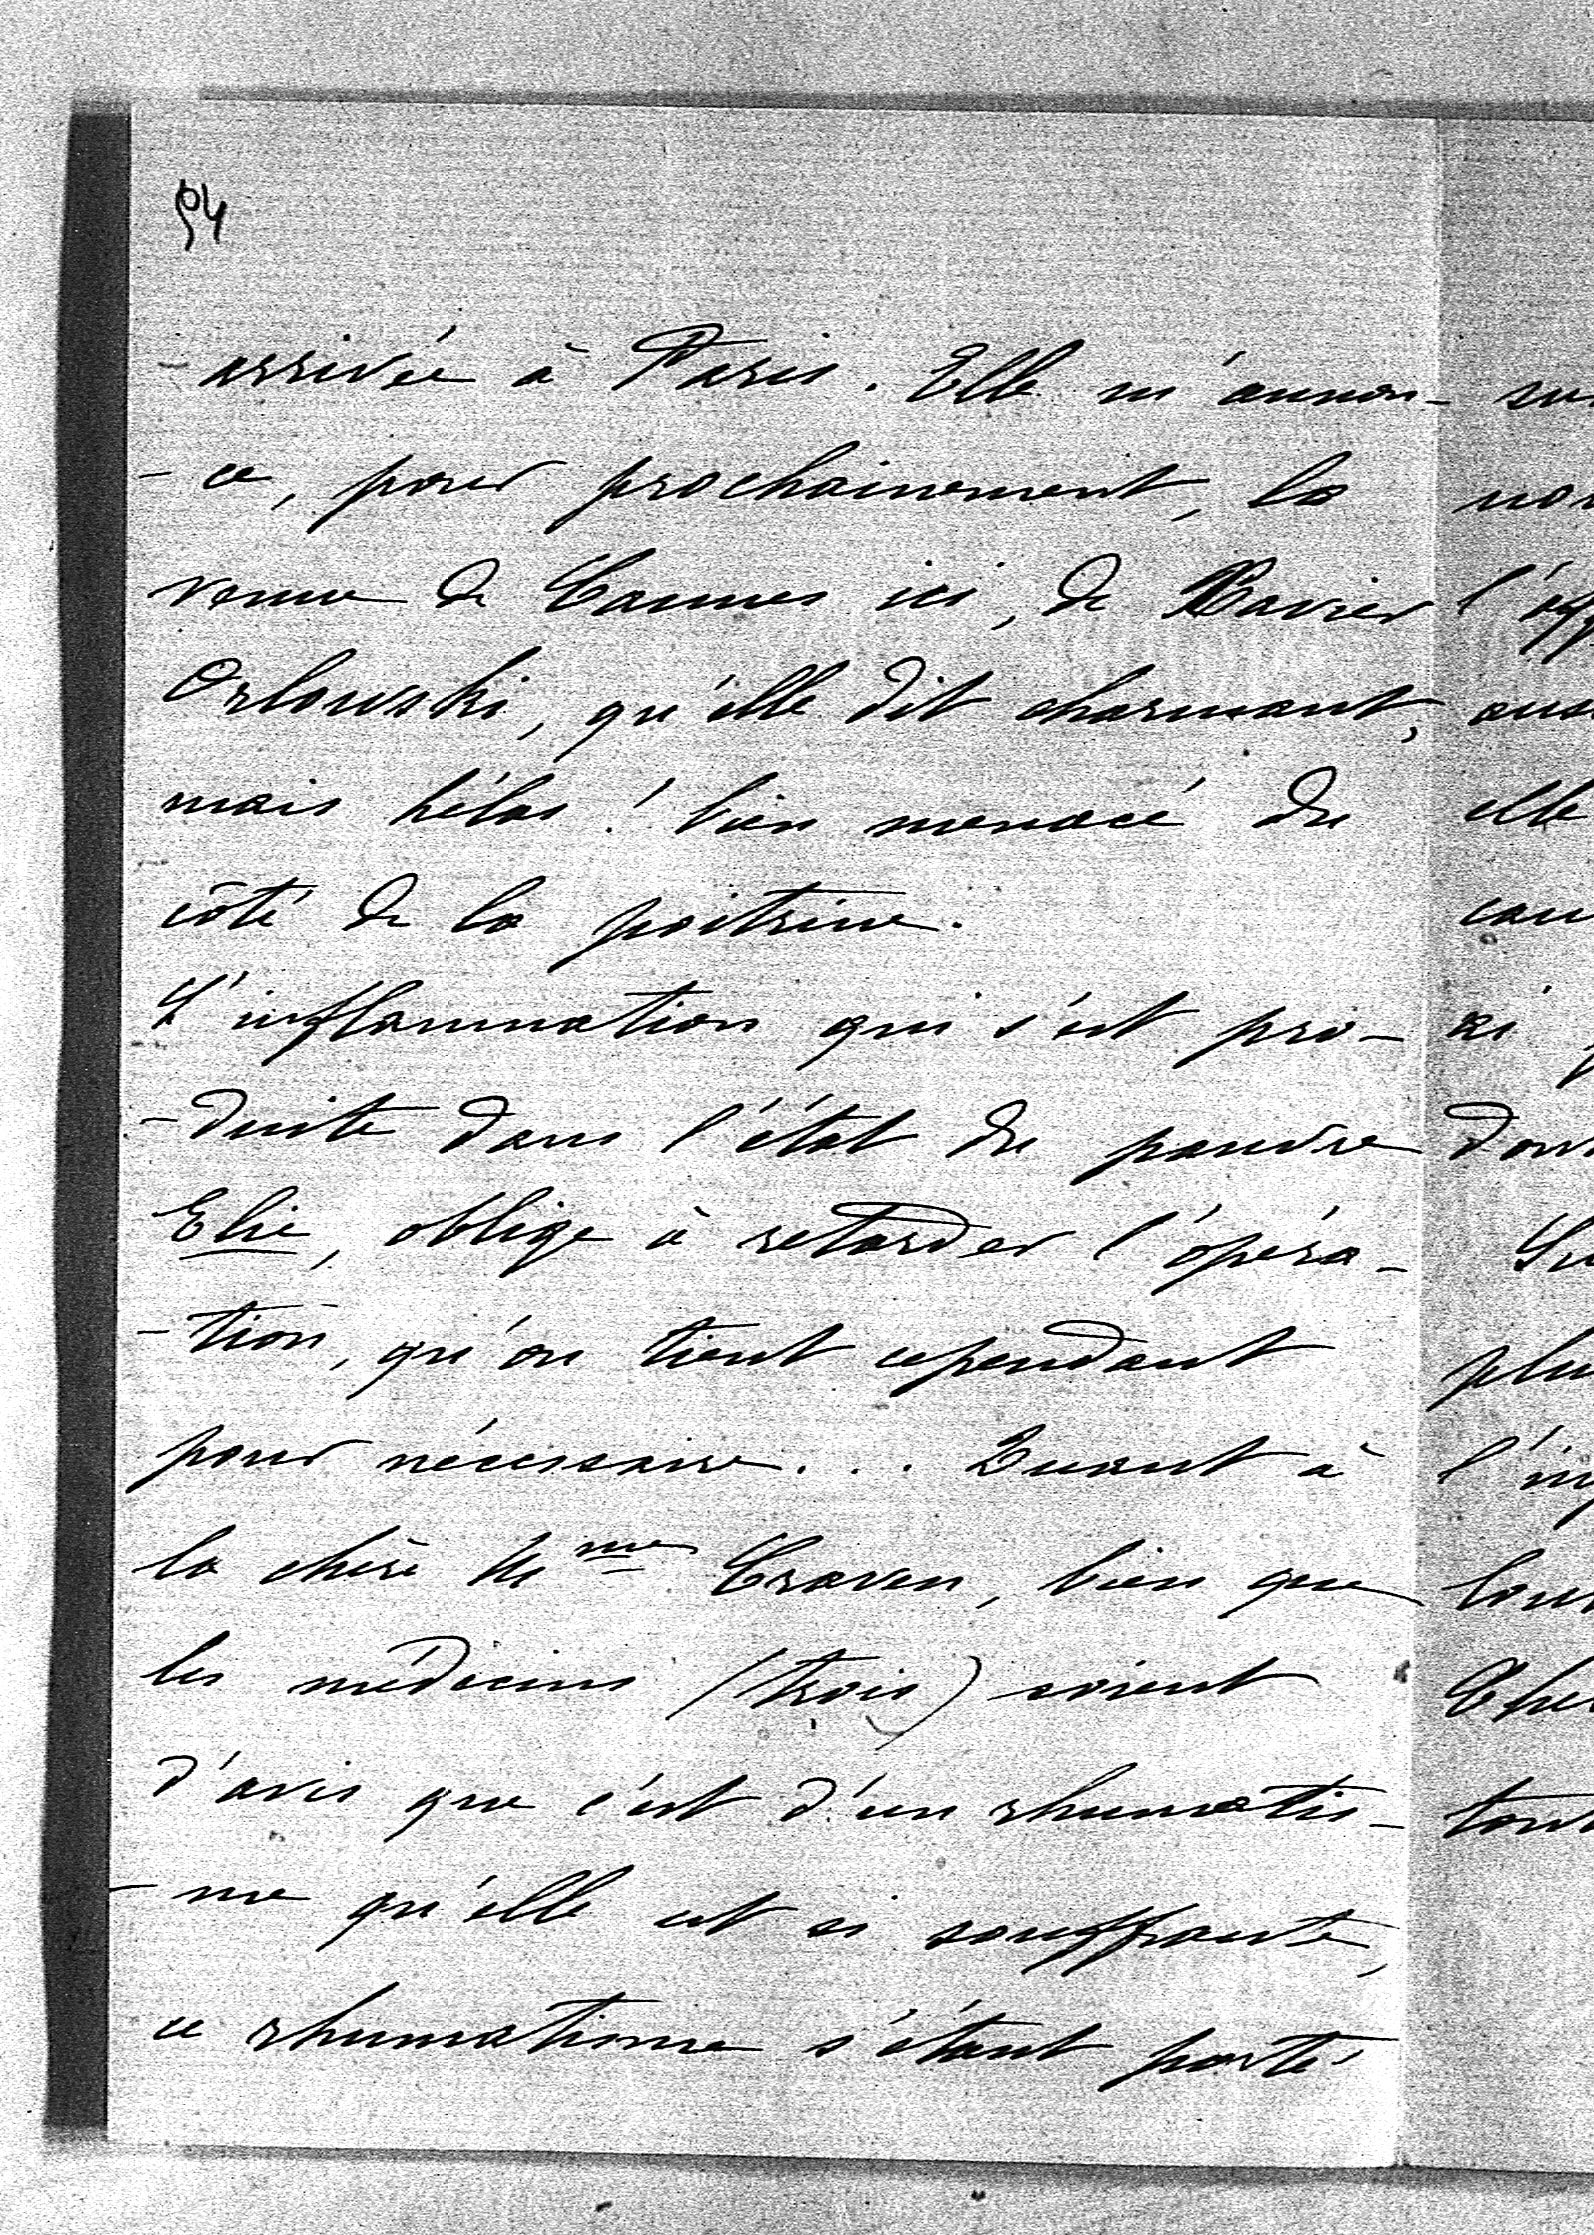 94
- arrivée à Paris. Elle m'annon-
- ce, pour prochainement, la
venue de Cannes ici, de Xavier
Orlowski, qu'elle dit charmant,
mais hélas! bien menacé du
côté de la poitrine.
L'inflammation qui s'est pro-
- duite dans l'état du pauvre
Elie, oblige à retarder l'opéra-
- tion, qu'on tient cependant
pour nécessaire... Quant à
la chère Mme Craven, bien que
les médecins (trois) soient
d'avis que c'est d'un rhumatis-
- me qu'elle est si souffrante,
ce rhumatisme s'étant porté